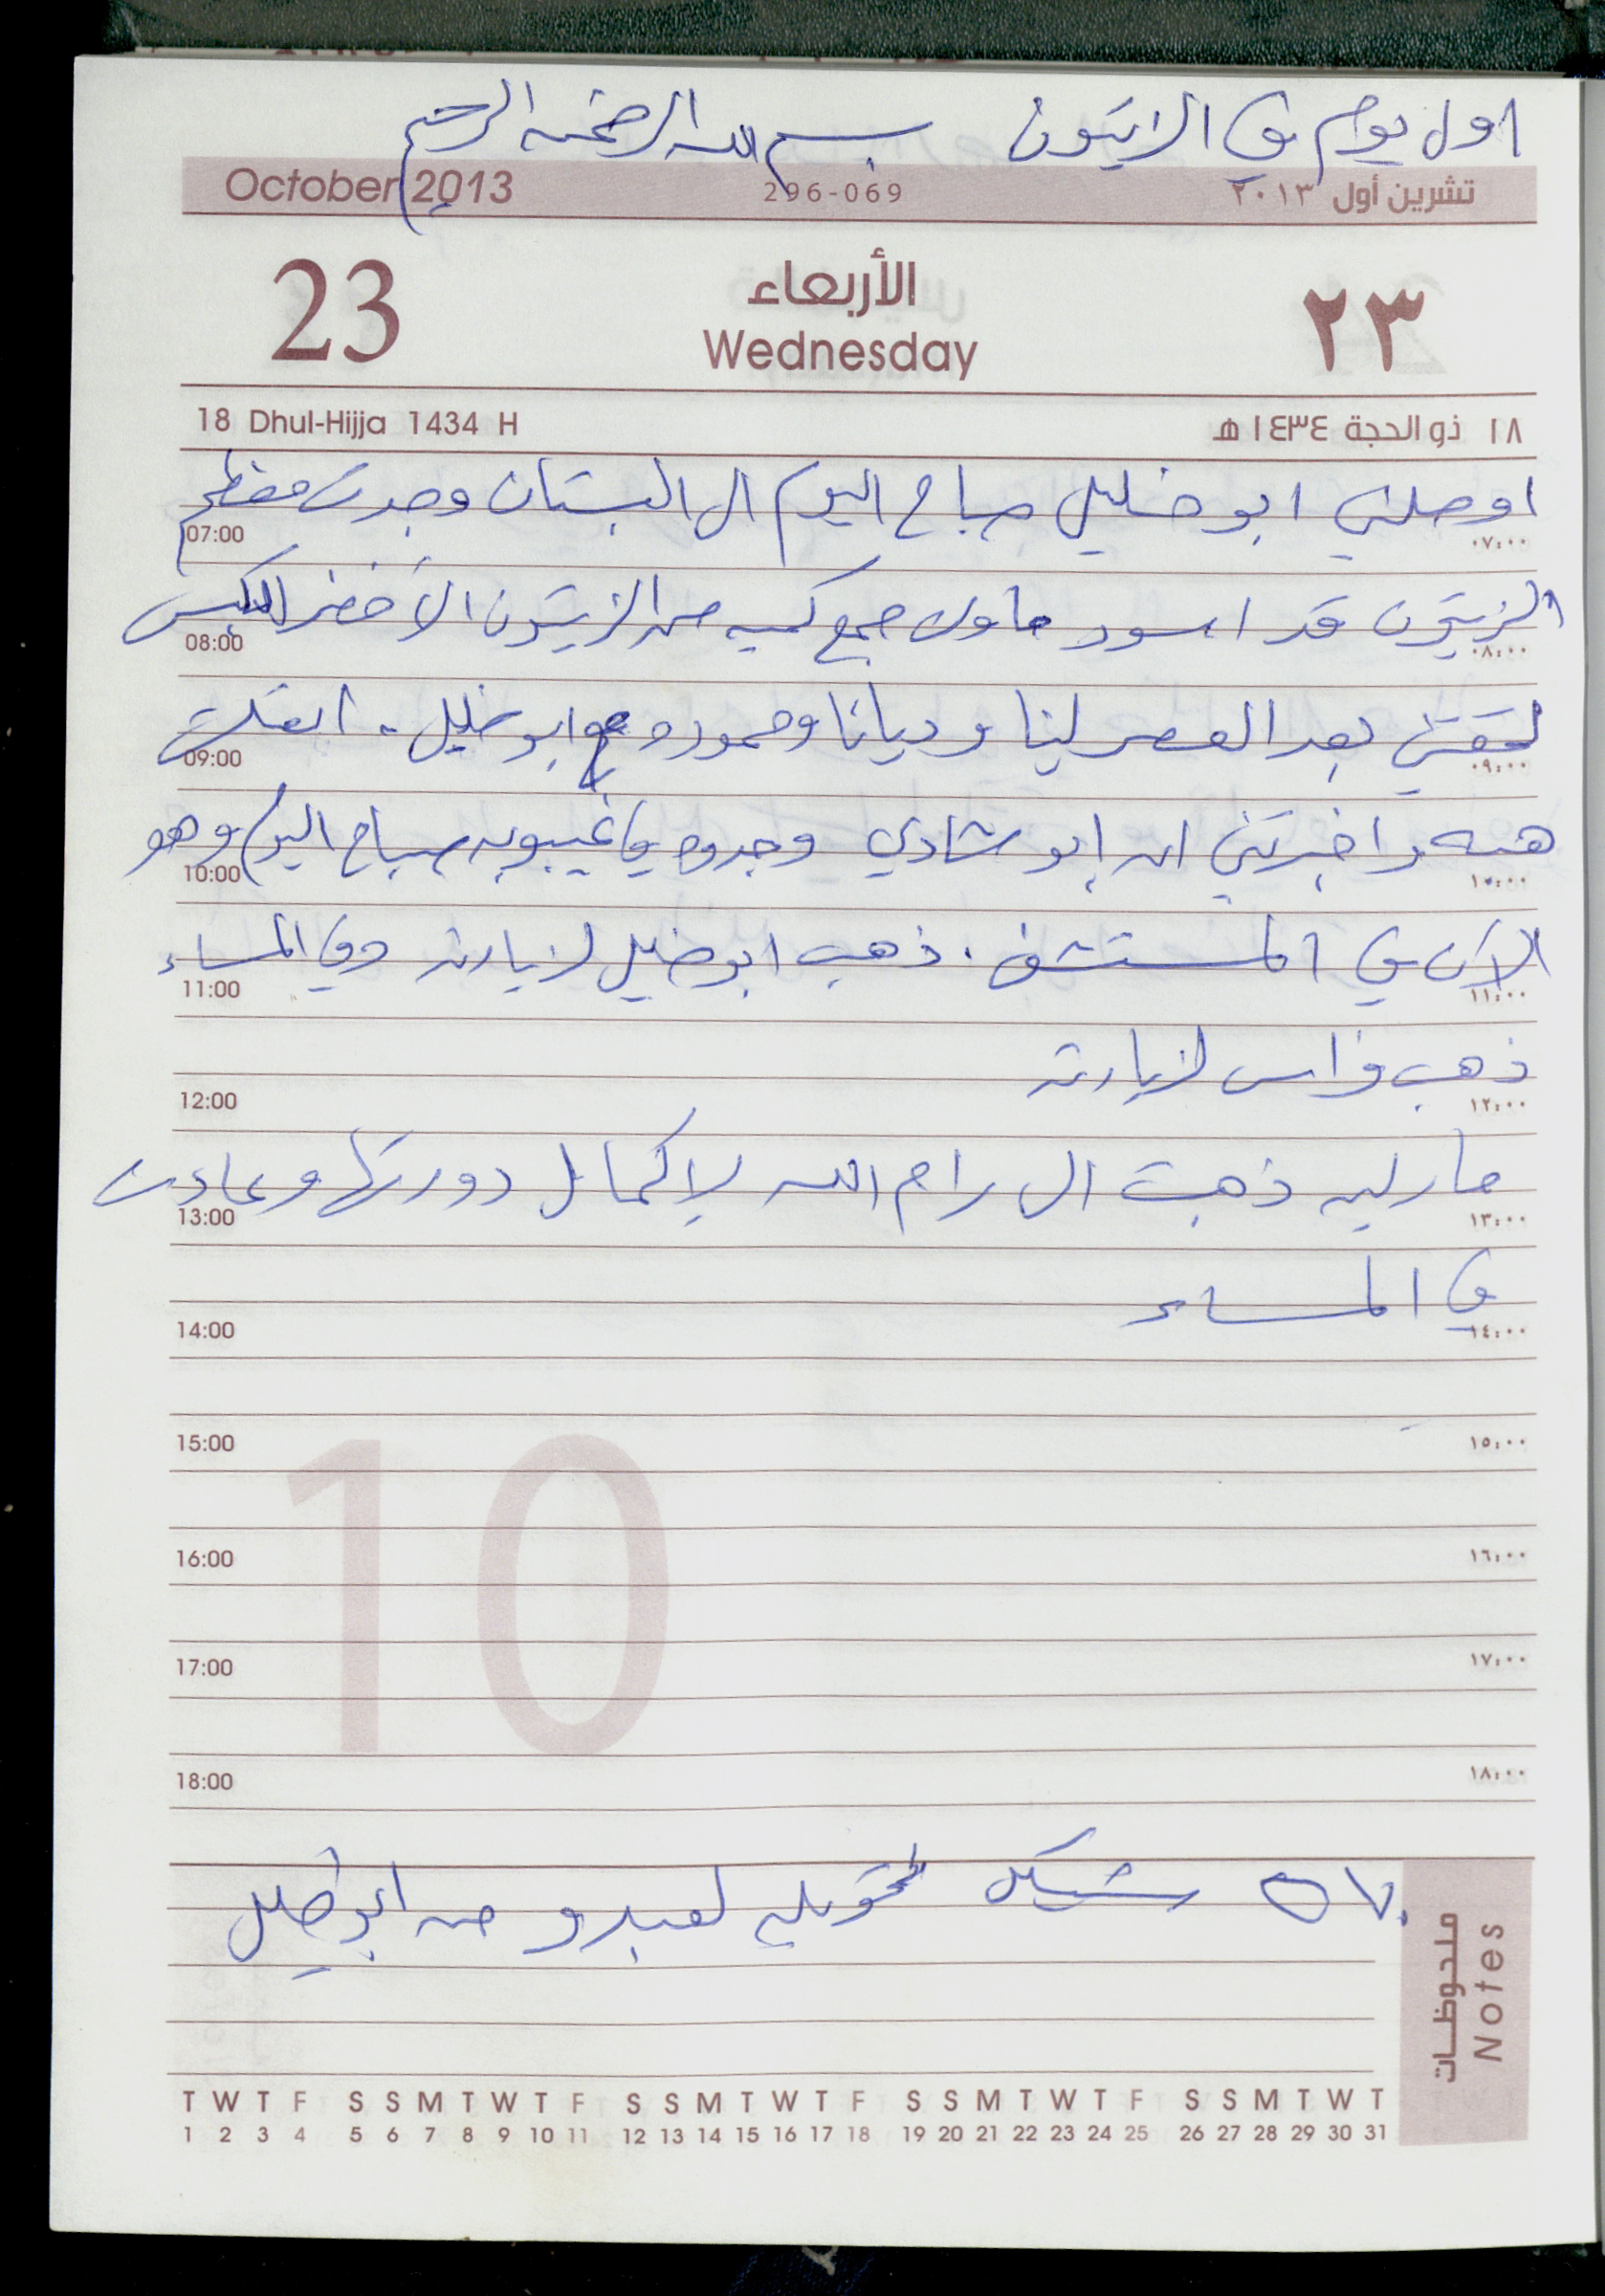 اول يوم في الزيتون بسم الله الرحمن الرحيم
October 2013 296-069 تشرين أول ٢٠١٣
23 الأربعاء ٢٣
Wednesday
18 Dhul-Hijja 1434 H ١٨ ذو الحجة ١٤٣٤ هـ
اوصلني ابو خليل صباح اليوم الى البستان وجدت معظم
07:00 ٠٧:٠٠
الزيتون قد اسود حاولت جمع كميه من الزيتون الأخضر للكبس
08:00 ٠٨:٠٠
لحقتني بعد العصر لينا وديانا وحموده مع ابو خليل. اتصلت
09:00 ٠٩:٠٠
هبه واخبرتني ان ابو شادي وجدوه في غيبوبه صباح اليوم وهو
10:00 ١٠:٠٠
الآن في المستشفى. ذهب ابو خليل لزيارته وفي المساء
11:00 ١١:٠٠
ذهب فراس لزيارته
12:00 ١٢:٠٠
ماريه ذهبت الى رام الله لاكمال دورتها وعادت
13:00 ١٣:٠٠
في المساء
14:00 ١٤:٠٠
15:00 ١٥:٠٠
16:00 ١٦:٠٠
10
17:00 ١٧:٠٠
18:00 ١٨:٠٠
شيكل تحويله لعبدو من ابو خليل
ملحوظات
Notes
T W T F S S M T W T F S S M T W T F S S M T W T F S S M T W T
1 2 3 4 5 6 7 8 9 10 11 12 13 14 15 16 17 18 19 20 21 22 23 24 25 26 27 28 29 30 31